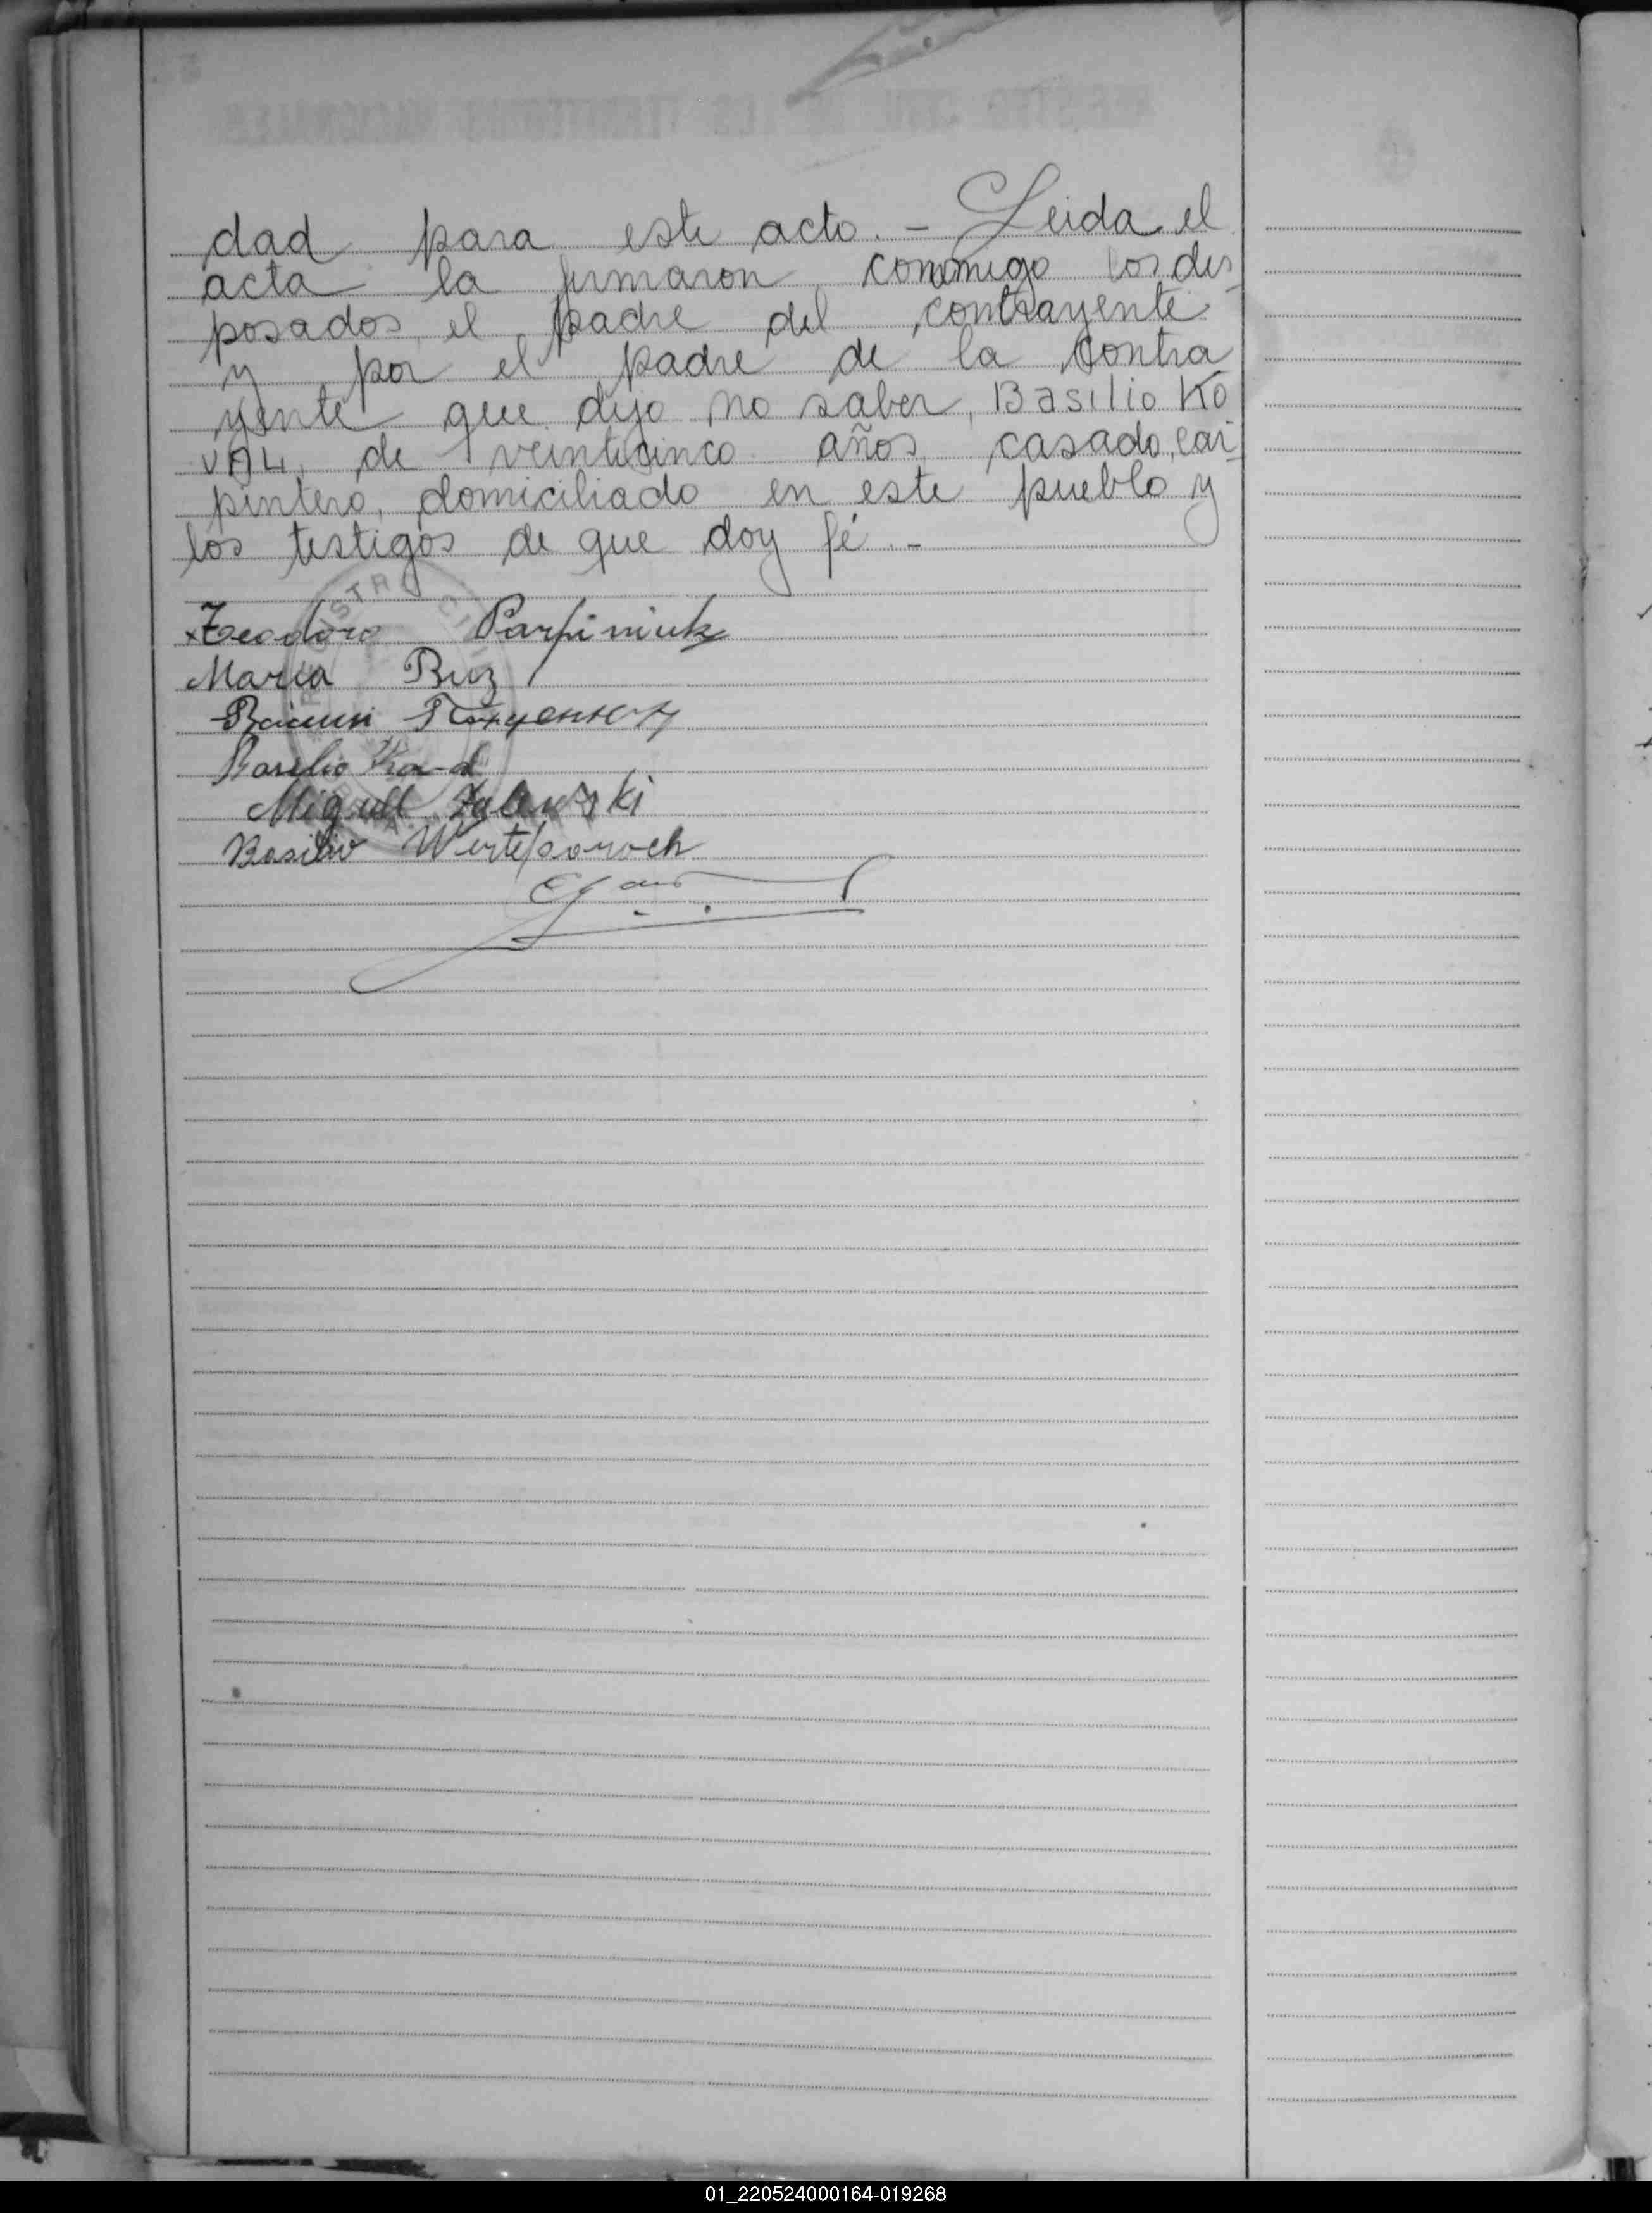 dad para este acto. - Leida el
acta la firmaron conmigo los des
posados, el padre del contrayente
y por el padre de la contra
yente que dijo no saber, Basilio Ko
vAL, de veinticinco años, casado, car
pintero, domiciliado en este pueblo y
los testigos de que doy fé. -
Teodoro Parfiniuk
Maria Buz
Basilio
Miguel Zalewski
Basilio
01_220524000164-019268